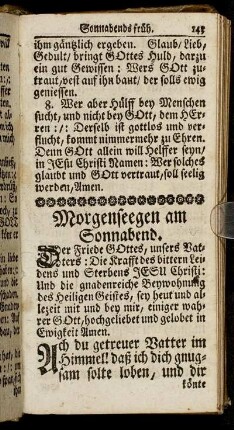 Sonnabends früh. 243
ihm gäntzlich ergeben. Glaub/ Lieb/
Gedult/ bringt GOttes Huld, darzu
ein gut Gewissen : Wers GOtt zu-
traut/ vest auf ihn baut/ der solls ewig
geniessen.
8. Wer aber Hülff bey Menschen
sucht, und nicht bey GOtt, dem HEr-
ren :/: Derselb ist gottlos und ver-
flucht, kommt nimmermehr zu Ehren.
Denn GOtt allein will Helffer seyn/
in JEsu Christi Namen: Wer solches
glaubt und GOtt vertraut/ soll seelig
werden, Amen.
Morgenseegen am
Sonnabend.
Der Friede GOttes, unsers Vat-
ters : Die Krafft des bittern Lei-
dens und Sterbens JESU Christi:
Und die gnadenreiche Beywohnung
des Heiligen Geistes, sey heut und al-
lezeit mit und bey mir, einiger wah-
rer GOtt, hochgeliebet und gelobet in
Ewigkeit Amen.
Ach du getreuer Vatter im
Himmel! daß ich dich gnug-
sam solte loben, und dir
könte